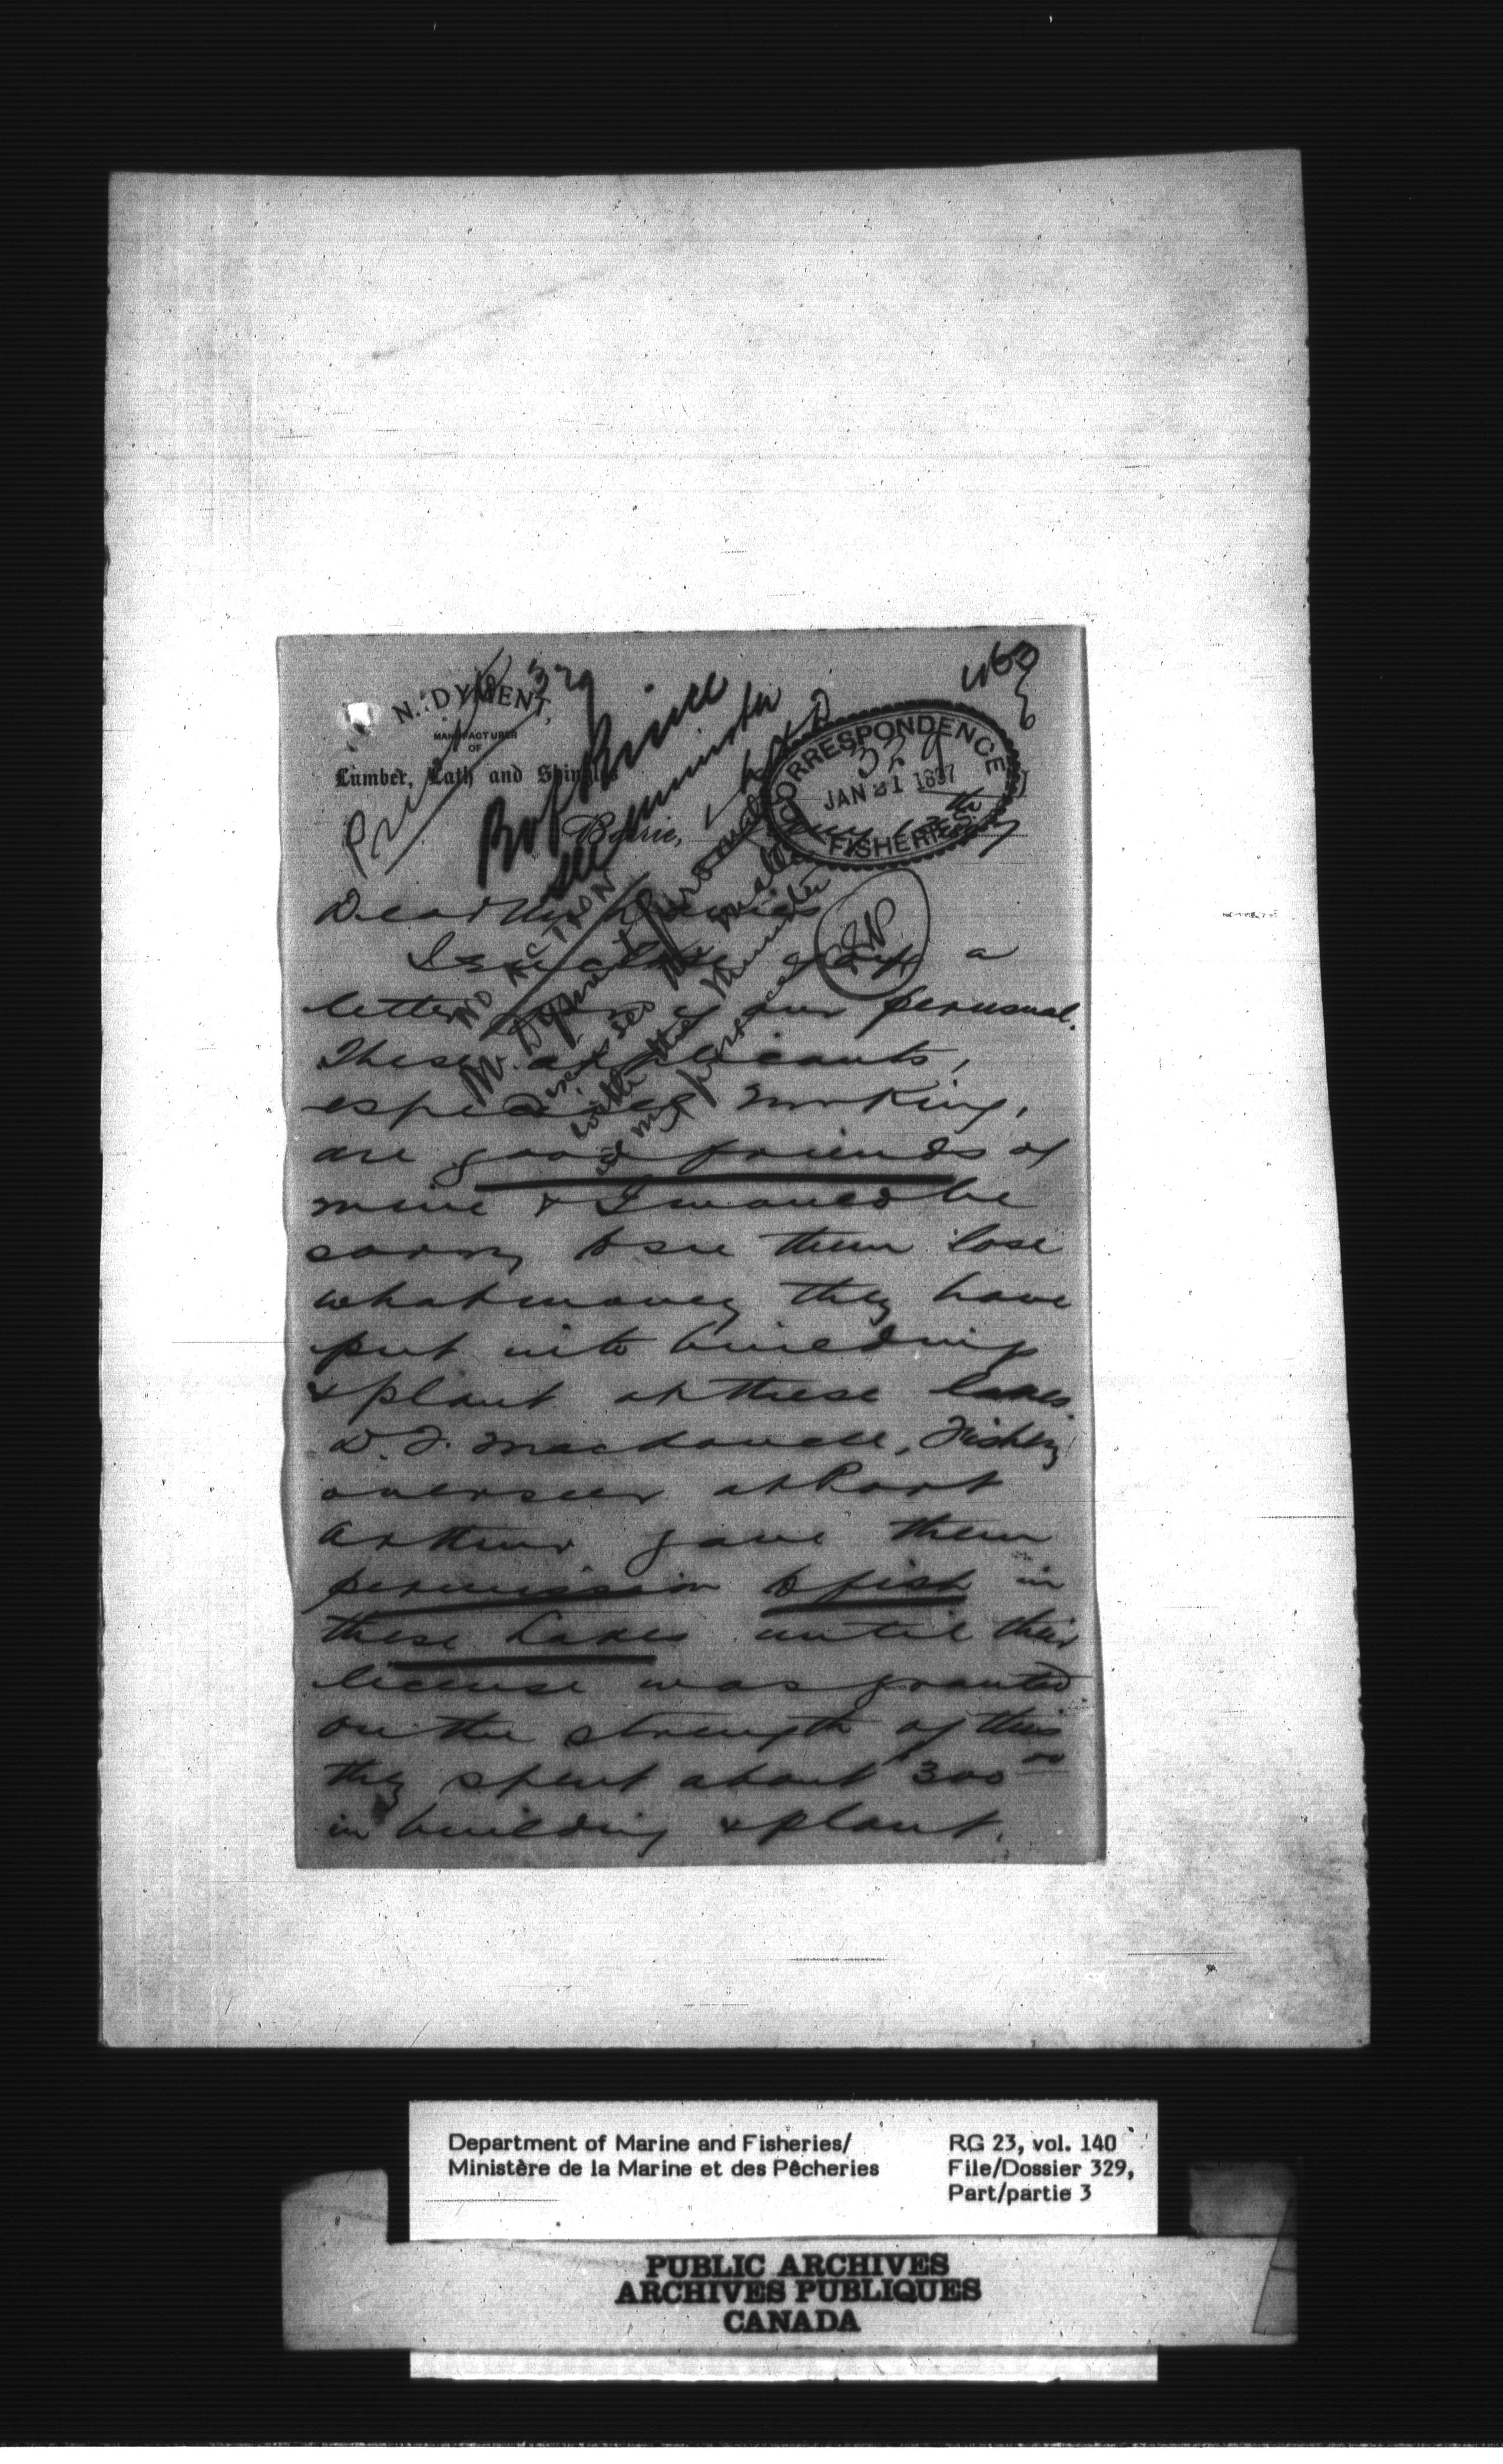 463
329
N. DYMENT,
MANUFACTURER
OF
Lumber, Lath and Shingles
Prince
see minister
CORRESPONDENCE
329
JAN 21 1897
FISHERIES
Barrie,
NO ACTION
Mr. Dyment personally
discussed the matter
with the Minister
in my presence
Dear Mr
I enclose a
letter for your perusal.
These applicants,
especially
are good friends of
mine & I would be
sorry to see them lose
what money they have
put into building
& plant at these lakes.
Fishery
overseer at Port
Arthur gave them
permission to fish in
these Lakes until their
license was granted
on the strength of this
they spent about 300 00
in building & plant.
Department of Marine and Fisheries/
Ministère de la Marine et des Pêcheries
RG 23, vol. 140
File/Dossier 329,
Part/partie 3
PUBLIC ARCHIVES
ARCHIVES PUBLIQUES
CANADA